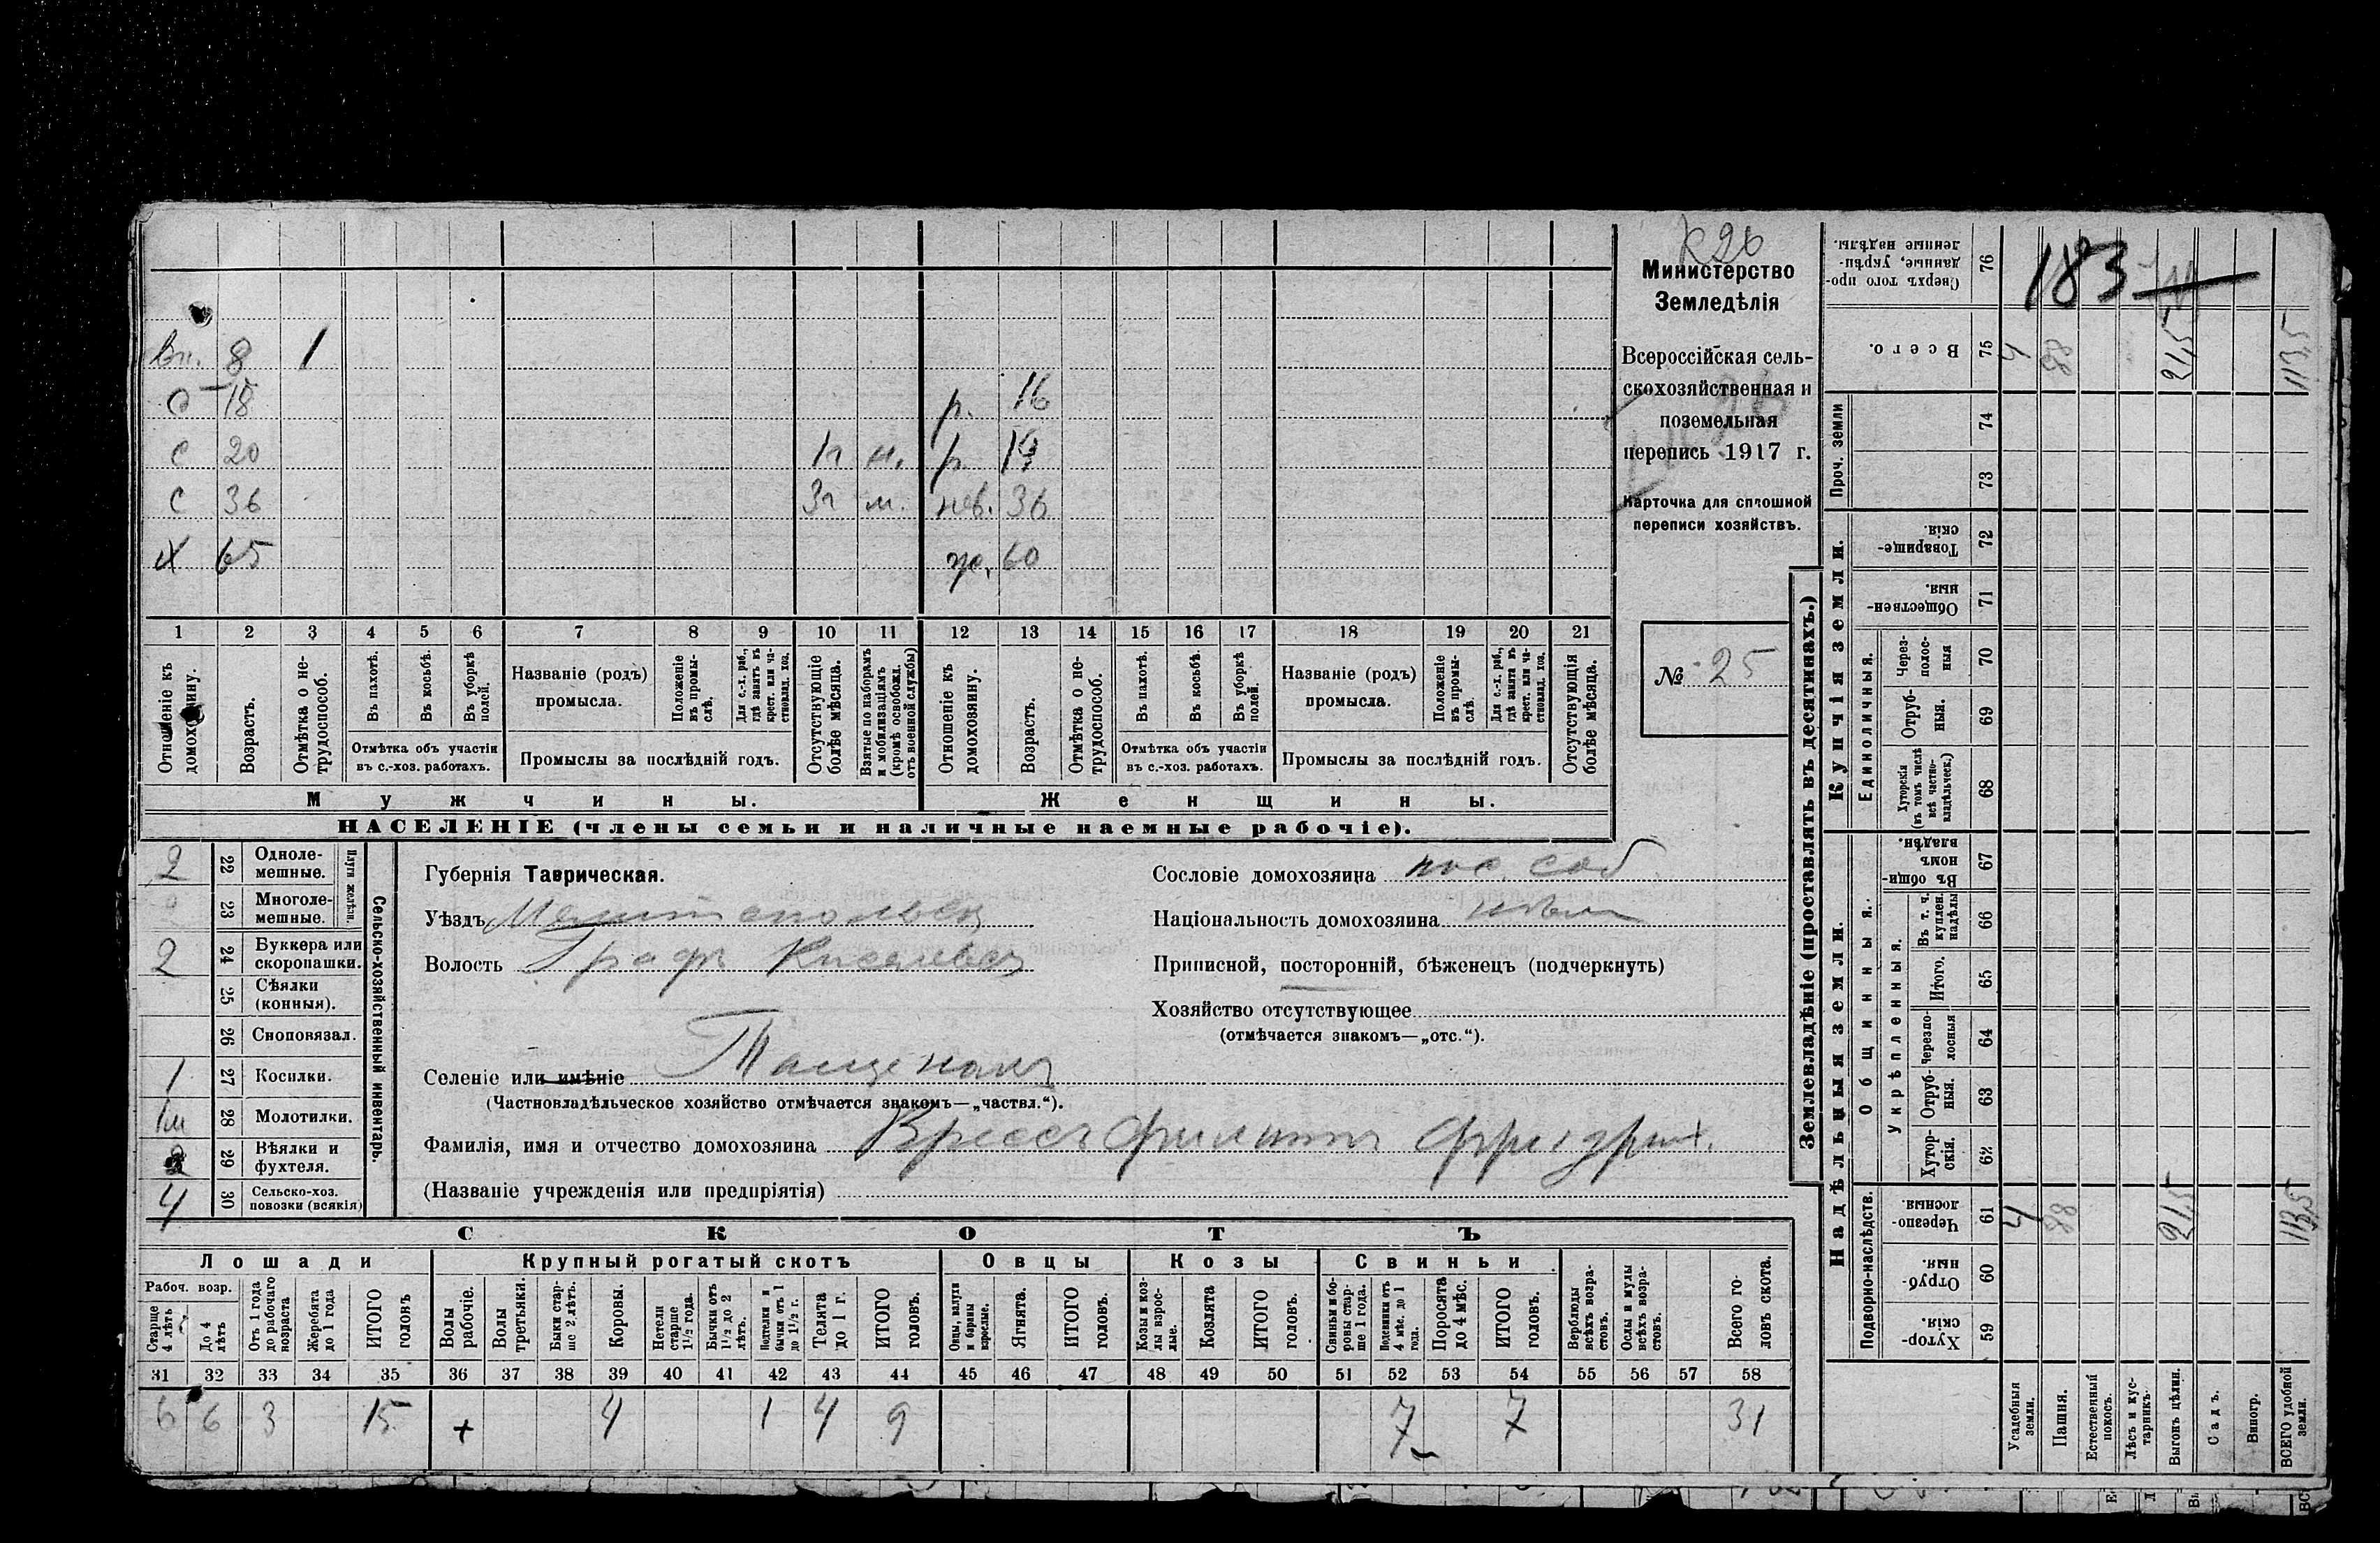 К26
Министерство
Земледѣлія
Всероссійская сель-
скохозяйственная и
поземельная
перепись 1917 г.
Карточка для сплошной
переписи хозяйствъ.
№ 25
вн. 8 1
с 18 р. 16
с 20 1г н. р 14
с 36 3г м. нев. 36
х 65 ж. 60
1 2 3 4 5 6 7 8 9 10 11 12 13 14 15 16 17 18 19 20 21
Отношеніе къ домохозяину.
Возрастъ.
Отмѣтка о не-трудоспособ.
Въ пахотѣ.
Въ косьбѣ.
Въ уборкѣ полей.
Отмѣтка объ участіи
въ с.-хоз. работахъ.
Названіе (родъ)
промысла.
Положеніе въ промы-слѣ.
Для с.-х. раб., гдѣ занятъ въ крест. или ча-стновлад. хоз.
Промыслы за послѣдній годъ.
Отсутствующіе болѣе мѣсяца.
Взятые по наборамъ и мобилизаціямъ (кромѣ освобожд. отъ военной службы)
Отношеніе къ домохозяину.
Возрастъ.
Отмѣтка о не-трудоспособ.
Въ пахотѣ.
Въ косьбѣ.
Въ уборкѣ полей.
Отмѣтка объ участіи
въ с.-хоз. работахъ.
Названіе (родъ)
промысла.
Положеніе въ промы-слѣ.
Для с.-х. раб., гдѣ занята въ крест. или ча-стновлад. хоз.
Промыслы за послѣдній годъ.
Отсутствующія болѣе мѣсяца.
Мужчины.
Женщины.
НАСЕЛЕНІЕ (члены семьи и наличные наемные рабочіе).
2 22 Одноле-мешные.
23 Многоле-мешные.
2 24 Буккера или скоропашки.
25 Сѣялки (конныя).
26 Сноповязал.
1 27 Косилки.
1м 28 Молотилки.
29 Вѣялки и фухтеля.
4 30 Сельско-хоз. повозки (всякія)
Плуги желѣзн.
Сельско-хозяйственный инвентарь.
Губернія Таврическая.
Уѣздъ Мелитопольск
Волость Графъ Киселевск
Селеніе или имѣніе Тащенакъ
(Частновладѣльческое хозяйство отмѣчается знакомъ—„частвл.“).
Фамилія, имя и отчество домохозяина Крессъ Филиппъ Фридрих.
(Названіе учрежденія или предпріятія)
Сословіе домохозяина пос. соб
Національность домохозяина нѣм
Приписной, посторонній, бѣженецъ (подчеркнуть)
Хозяйство отсутствующее
(отмѣчается знакомъ—„отс.“).
СКОТЪ
Лошади
Крупный рогатый скотъ
Овцы
Козы
Свиньи
Рабоч. возр.
Старше 4 лѣтъ
До 4 лѣтъ
Отъ 1 года до рабочаго возраста
Жеребята до 1 года
ИТОГО головъ
Волы рабочіе.
Волы третьяки.
Быки стар-ше 2 лѣтъ.
Коровы.
Нетели старше 1½ года.
Бычки отъ 1½ до 2 лѣтъ.
Подтелки и бычки отъ 1 до 1½ г.
Телята до 1 г.
ИТОГО головъ.
Овцы, валухи и бараны взрослые.
Ягнята.
ИТОГО головъ.
Козы и коз-лы взрос-лые.
Козлята
ИТОГО головъ.
Свиньи и бо-ровы стар-ше 1 года.
Подсвинки отъ 4 мѣс. до 1 года.
Поросята до 4 мѣс.
ИТОГО головъ.
Верблюды всѣхъ возра-стовъ.
Ослы и мулы всѣхъ возра-стовъ.
Всего го-ловъ скота.
31 32 33 34 35 36 37 38 39 40 41 42 43 44 45 46 47 48 49 50 51 52 53 54 55 56 57 58
6 6 3 15 + 4 1 4 9 7 7 31
Землевладѣніе (проставлять въ десятинахъ.)
Купчія земли.
Надѣльныя земли.
Проч. земли
Единоличныя.
Общинныя.
Укрѣпленныя.
Подворно-наслѣдств.
Сверхъ того про-данные, укрѣп-ленные надѣлы. 76 183
Всего. 75 4 88 21,5 113,5
74
73
Товарище-скія. 72
Обществен-ныя 71
Через-полос-ныя 70
Отруб-ныя. 69
Хуторскія (въ томъ числѣ всѣ частно-владѣльческ.) 68
Въ общи-номъ владѣн. 67
Въ т. ч. куплен. надѣлы 66
Итого. 65
Черезпо-лосныя 64
Отруб-ныя. 63
Хутор-скія. 62
Черезпо-лосныя. 61 4 88 21,5 113,5
Отруб-ныя. 60
Хутор-скія. 59
Усадебныя земли.
Пашня.
Естественный покосъ.
Лѣсъ и кус-тарникъ.
Выгонъ цѣлин.
Садъ.
Виногр.
ВСЕГО удобной земли.